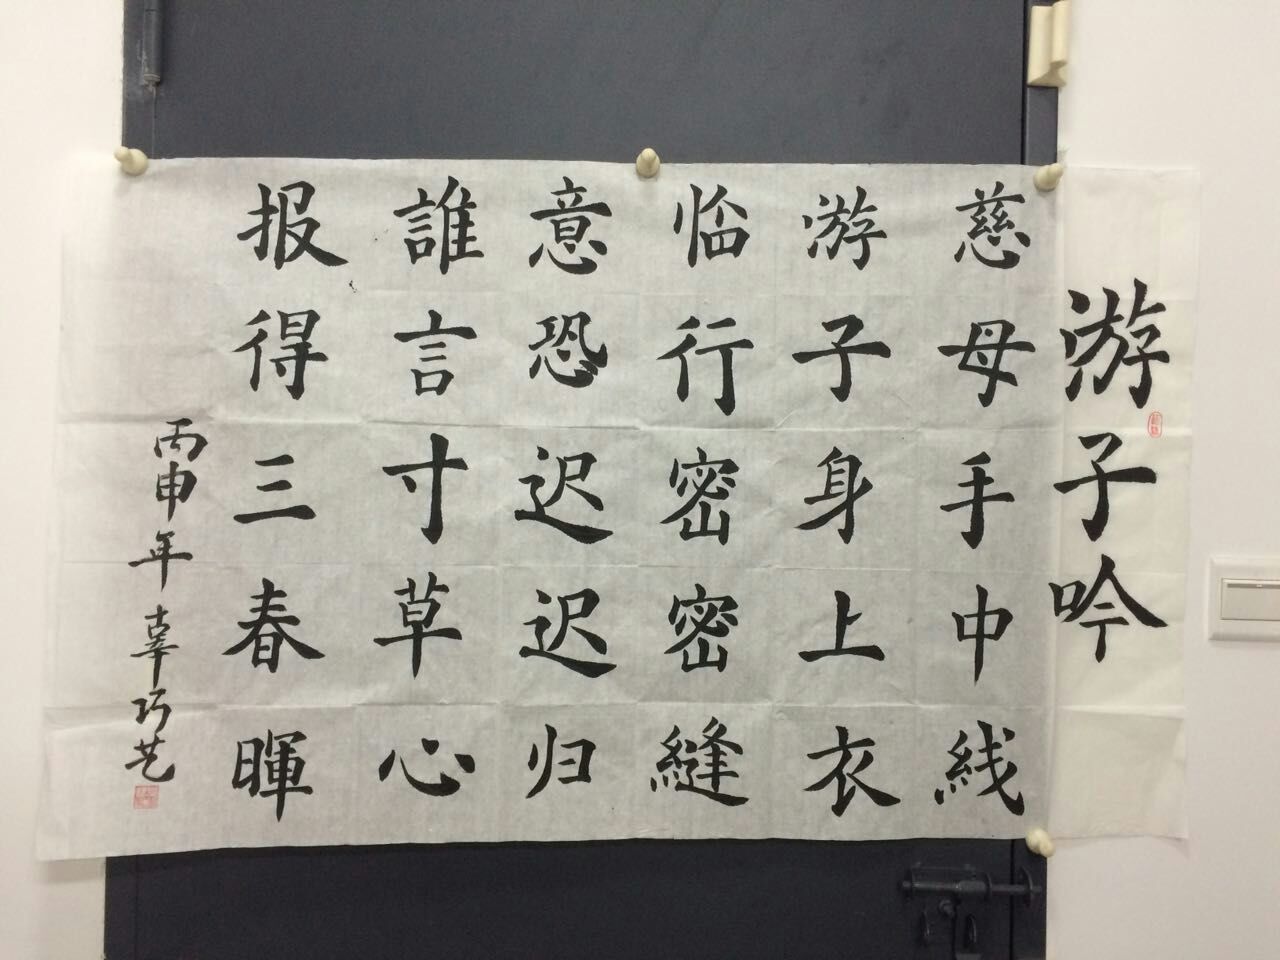 游子吟
慈母手中线
游子身上衣
临行密密縫
意恐迟迟归
誰言寸草心
报得三春暉
丙申年辜巧艺